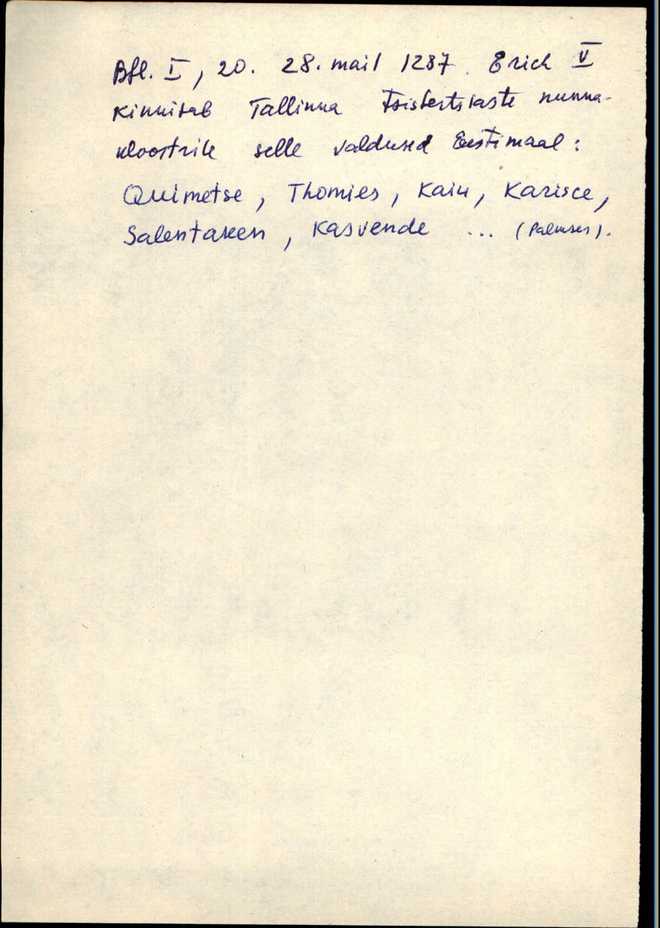 Bfl. I, 20. 28. mail 1287. Erich V
kinnitab Tallinna Tsistertslaste nunna-
kloostrile selle valdused Eestimaal:
Quimetse, Thomies, Kaiu, Karisce,
Salentaken, Kasvende ... (Palmses).